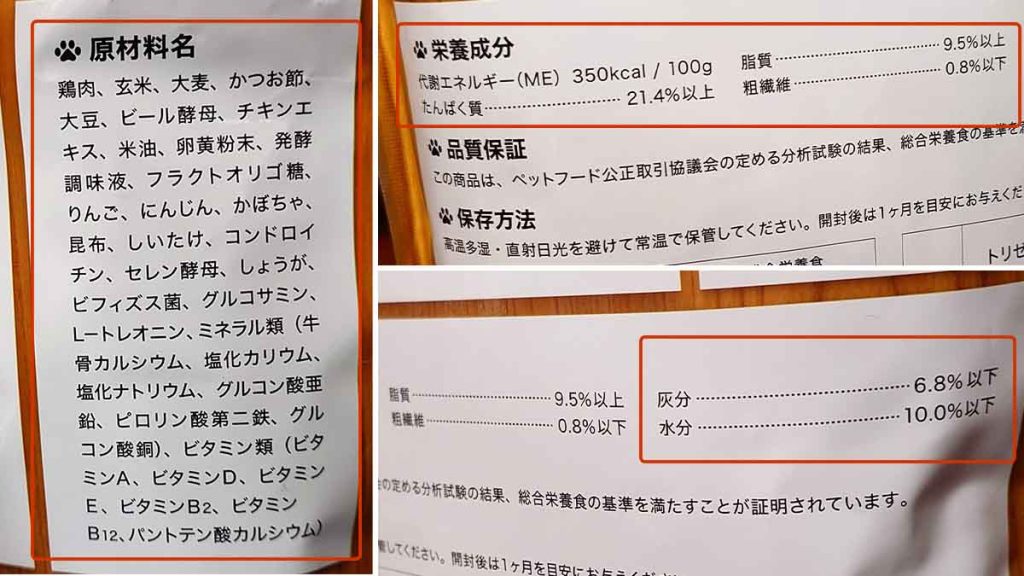 原材料名
鶏肉、玄米、大麦、かつお節、
大豆、ビール酵母、チキンエ
キス、米油、卵黄粉末、発酵
調味液、フラクトオリゴ糖、
りんご、にんじん、かぼちゃ、
昆布、しいたけ、コンドロイ
チン、セレン酵母、しょうが、
ビフィズス菌、グルコサミン、
L-トレオニン、ミネラル類（牛
骨カルシウム、塩化カリウム、
塩化ナトリウム、グルコン酸亜
鉛、ピロリン酸第二鉄、グル
コン酸銅）、ビタミン類（ビタ
ミンA、ビタミンD、ビタミン
E、ビタミンB2、ビタミン
B12、パントテン酸カルシウム）
栄養成分
代謝エネルギー（ME） 350kcal / 100g
たんぱく質 21.4％以上
脂質 9.5％以上
粗繊維 0.8％以下
品質保証
この商品は、ペットフード公正取引協議会の定める分析試験の結果、総合栄養食の基準を
保存方法
高温多湿・直射日光を避けて常温で保管してください。開封後は1ヶ月を目安にお与えくだ
トリゼ
脂質 9.5％以上
粗繊維 0.8％以下
灰分 6.8％以下
水分 10.0％以下
の定める分析試験の結果、総合栄養食の基準を満たすことが証明されています。
管してください。開封後は1ヶ月を目安にお与えください。